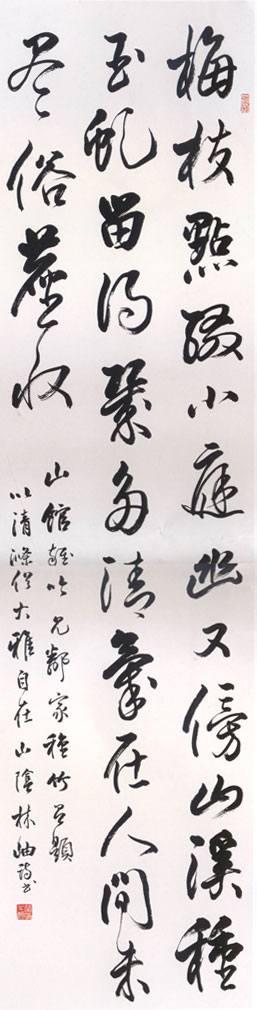 梅枝點綴小庭幽又傍山溪種
玉虬留得幾多清氣在人間未
尽俗塵收
山館雜吟見鄰家種竹題
以清滌俗大雅自在山陰林岫詩書